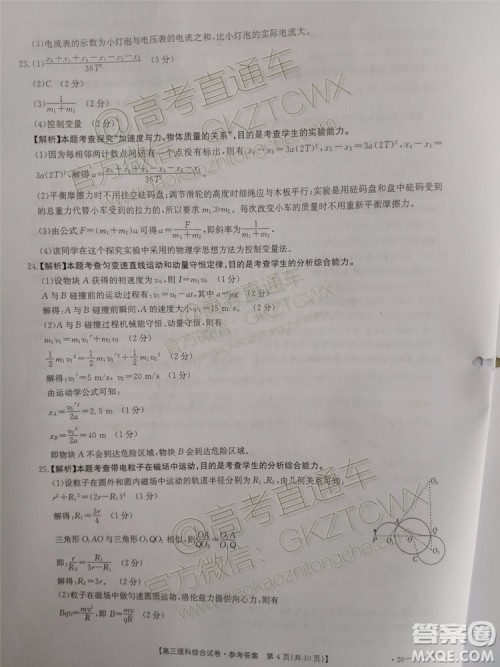 (3)电流表的示数为小灯泡与电压表的电流之和，比小灯泡的实际电流大。
23.(1) (x₄+x₅+x₆-x₁-x₂-x₃)/36T² (3分)
(2)C (2分)
(3) 1/(m₁+m₂) (2分)
(4)控制变量 (2分)
【解析】本题考查探究“加速度与力、物体质量的关系”，目的是考查学生的实验能力。
(1)因为每相邻两计数点间还有一个点没有标出，则有
(2)平衡摩擦力时不用挂空砝码盘，调节滑轮的高度使细绳应与木板平行；实验时，若用砝码盘和盘中砝码受到的总重力代替小车受到的拉力，所以要求 m₁≫m₂。每次改变小车的质量时，不需要重新平衡摩擦力。
(3)由公式 F=(m₁+m₂)a 可得 a=F/(m₁+m₂)，即斜率为 1/(m₁+m₂)。
(4)该同学在这个探究实验中采用的物理学方法为控制变量法。
24.【解析】本题考查匀变速直线运动和动量守恒定律，目的是考查学生的分析综合能力。
(1)设物块 A 获得的初速度为 v₀，则 I=m₁v₀ (1分)
A 与 B 碰撞前的运动过程有：v₁=v₀-at，其中 a=μg (2分)
解得：A 与 B 碰撞前瞬间，物块 A 的速度大小 (1分)
(2)A 与 B 碰撞过程机械能守恒、动量守恒，则有
m₁v₁=m₁v₁′+m₂v₂ (1分)
½m₁v₁²=½m₁v₁′²+½m₂v₂² (1分)
解得：v₁′=5 m/s，v₂=20 m/s (2分)
由运动学公式可知：
x_A=v₁′²/2a=2.5 m (1分)
x_B=v₂²/2a=40 m (1分)
即物块 A 未达危险区域，物块 B 已达危险区域。 (1分)
25.【解析】本题考查带电粒子在磁场中运动，目的是考查学生的分析综合能力。
(1)设粒子在圆外和圆内磁场中运动的轨道半径分别为 R₁、R₂，则有
r²+R₁²=(2r-R₁)² (2分)
解得，R₁=3r/4 (1分)
三角形 O₁AO 与三角形 O₁QO₂ 相似，则 OA/QO₂=O₁A/O₁Q
即：r/R₂=R₁/(3r-R₁) (2分)
解得：R₂=3r。 (2分)
(2)粒子在磁场中运动时，洛伦兹力提供向心力，则有
Bqv=mv²/R，即 B=mv/qR (2分)
P
A
Q
C
O₁
O₂
【高三理科综合试卷·参考答案 第4页(共10页)】
·20-
@高考直通车
官方微信：GKZTCWX
官方网站：gaokaozhitongche.com
答案圈
MXQE.COM